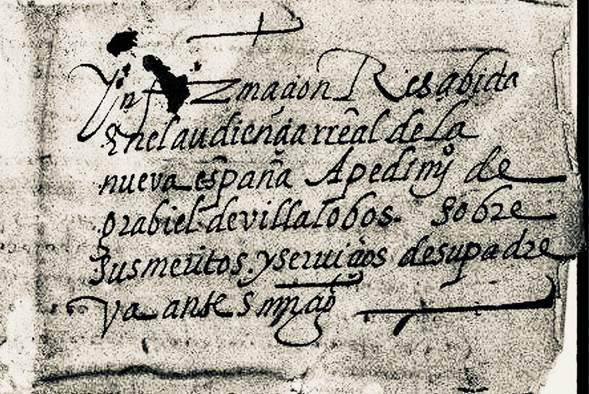 Ynformaçion Resçabida
Enel audiençia rreal de la
nueva españa Apedimyº de
grabiel de villalobos. sobre
sus meritos. y serviçios de su padre
va ante su mag